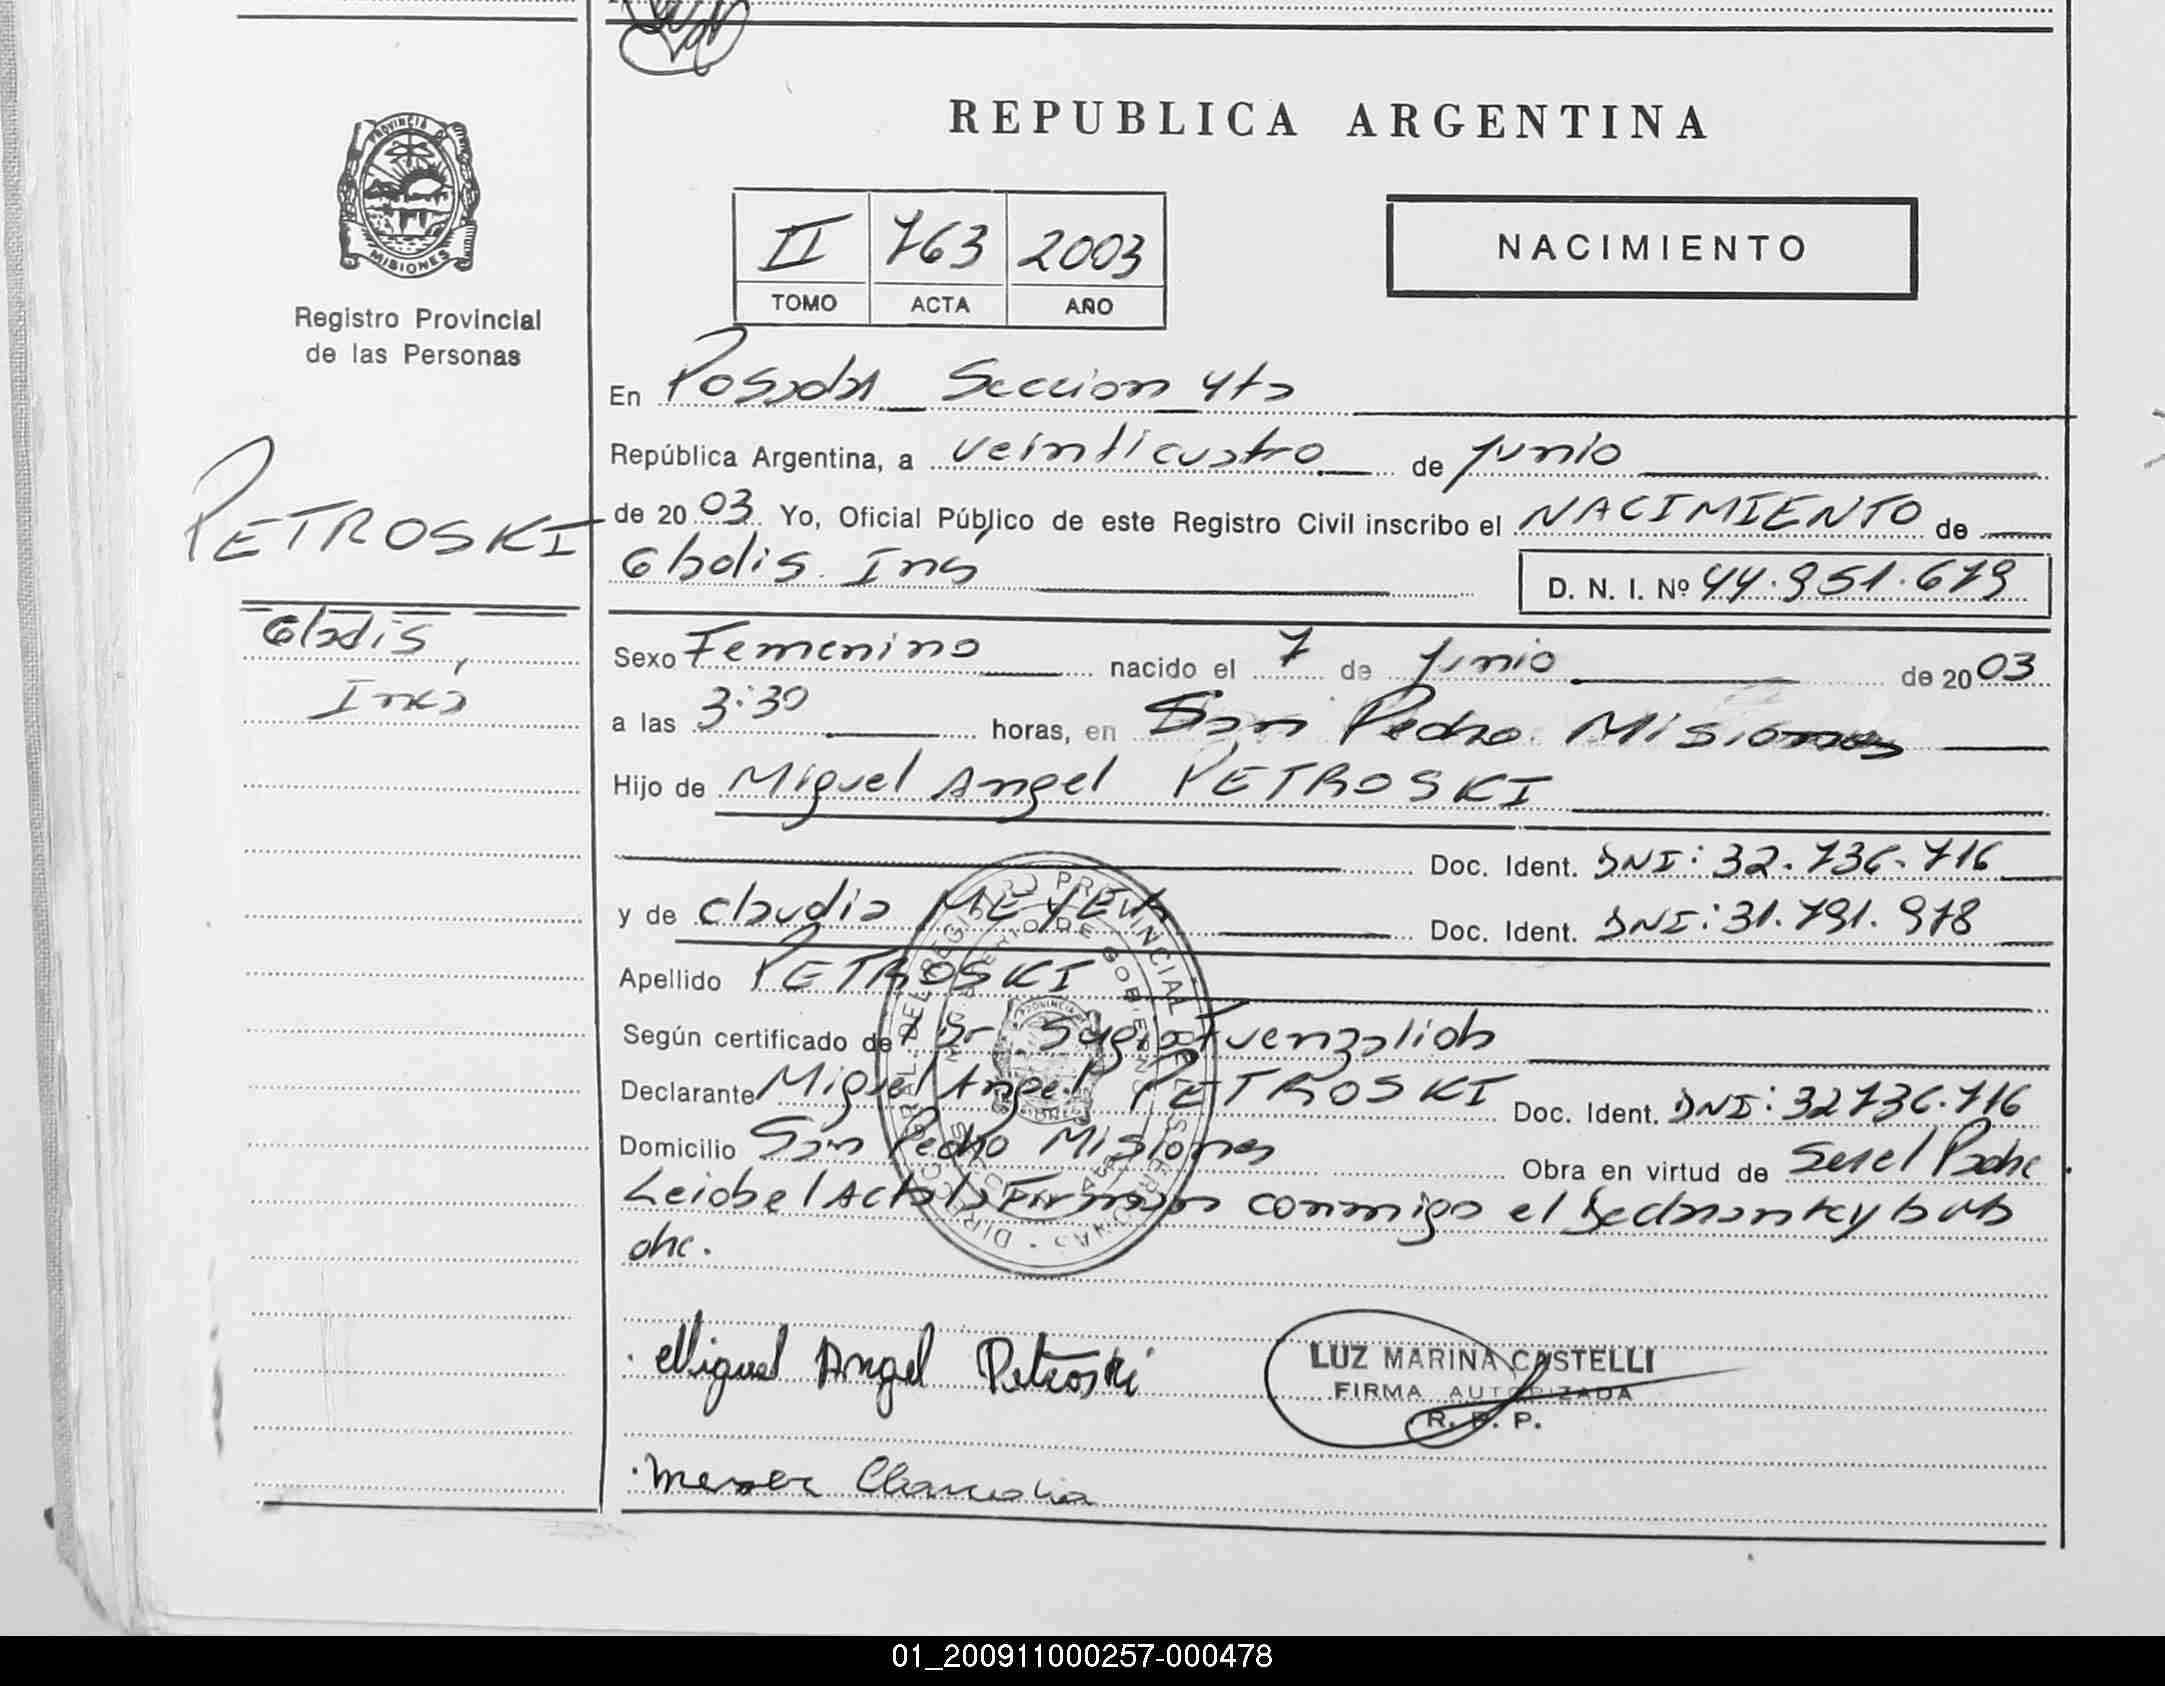 REPUBLICA ARGENTINA
PROVINCIA DE MISIONES
Registro Provincial
de las Personas
II 763 2003
TOMO ACTA AÑO
NACIMIENTO
En Posadas Seccion 4ta
República Argentina, a veinticuatro de Junio
de 20 03 Yo, Oficial Público de este Registro Civil inscribo el NACIMIENTO de
PETROSKI
Gladis Ines
D. N. I. Nº 44.951.679
Gladis,
Ines
Sexo Femenino nacido el 7 de Junio de 20 03
a las 3:30 horas, en San Pedro Misiones
Hijo de Miguel Angel PETROSKI
Doc. Ident. DNI: 32.736.716
y de Claudia MEYER Doc. Ident. DNI: 31.791.978
Apellido PETROSKI
Según certificado de Dr. Fuenzalida
Declarante Miguel Angel PETROSKI Doc. Ident. DNI: 32736.716
Domicilio San Pedro Misiones Obra en virtud de Ser el Padre
Leida el Acta la Firman conmigo el Declarante y la Ma
dre.
Miguel Angel Petroski
LUZ MARINA CASTELLI
FIRMA AUTORIZADA
R. P. P.
01_200911000257-000478